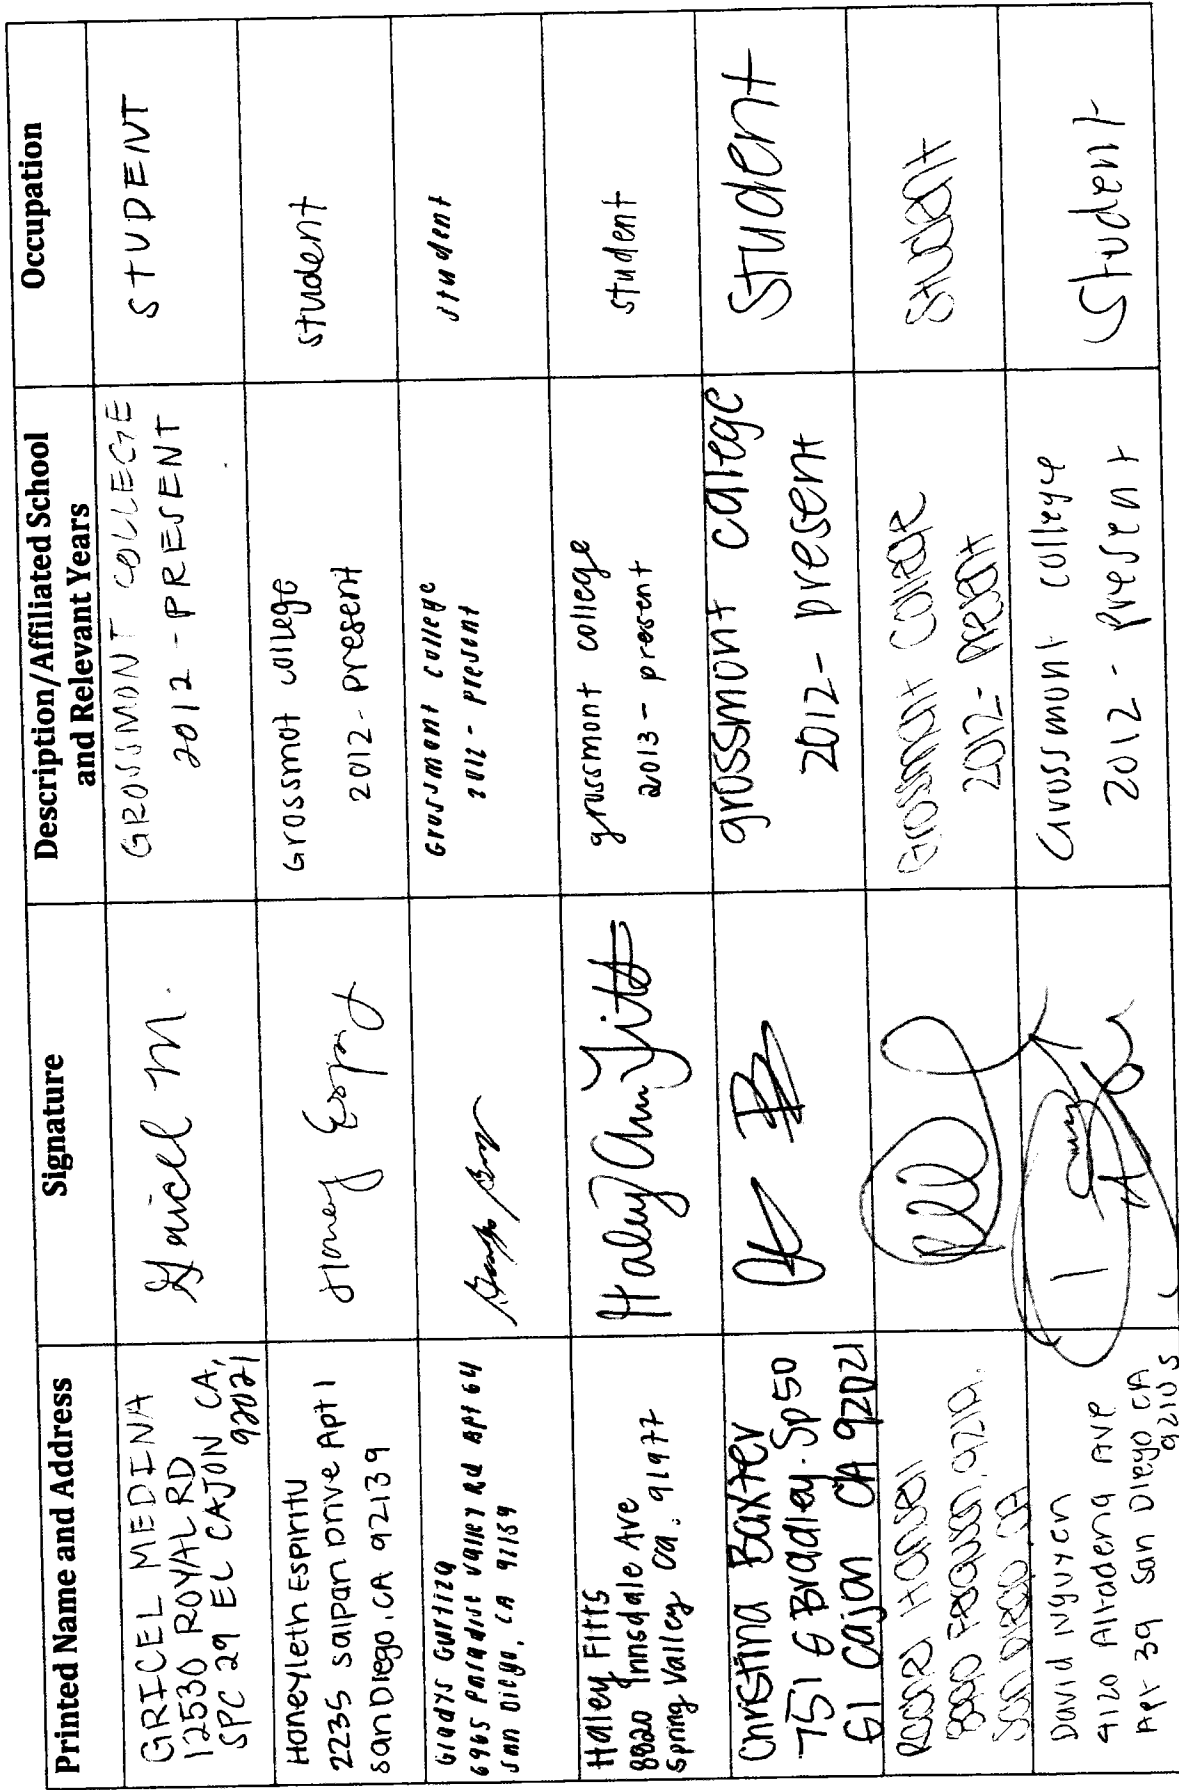 Printed Name and Address
Signature
Description/Affiliated School
and Relevant Years
Occupation
GRICEL MEDINA
12530 ROYAL RD
SPC 29 EL CAJON CA,
92021
Gricel M.
GROSSMONT COLLEGE
2012 - PRESENT
STUDENT
Honeyleth Espiritu
2235 saipan Drive Apt 1
san Diego, CA 92139
Honey
Grossmot college
2012 - present
student
Gladys
6965 Paradise valley Rd Apt 64
San Diego, CA
Grossmont college
2012 - present
student
Haley Fitts
8820 Innsdale Ave
Spring Valley Ca. 91977
Haley Ann Fitts
grossmont college
2013 - present
student
Christina Baxter
751 E Bradley Sp 50
El Cajon CA 92021
grossmont college
2012 - present
Student
San Diego CA
Grossmont College
2012 - present
Student
David Nguyen
4120 Altadena Ave
Apt 39 San Diego CA
92105
Grossmont college
2012 - present
Student